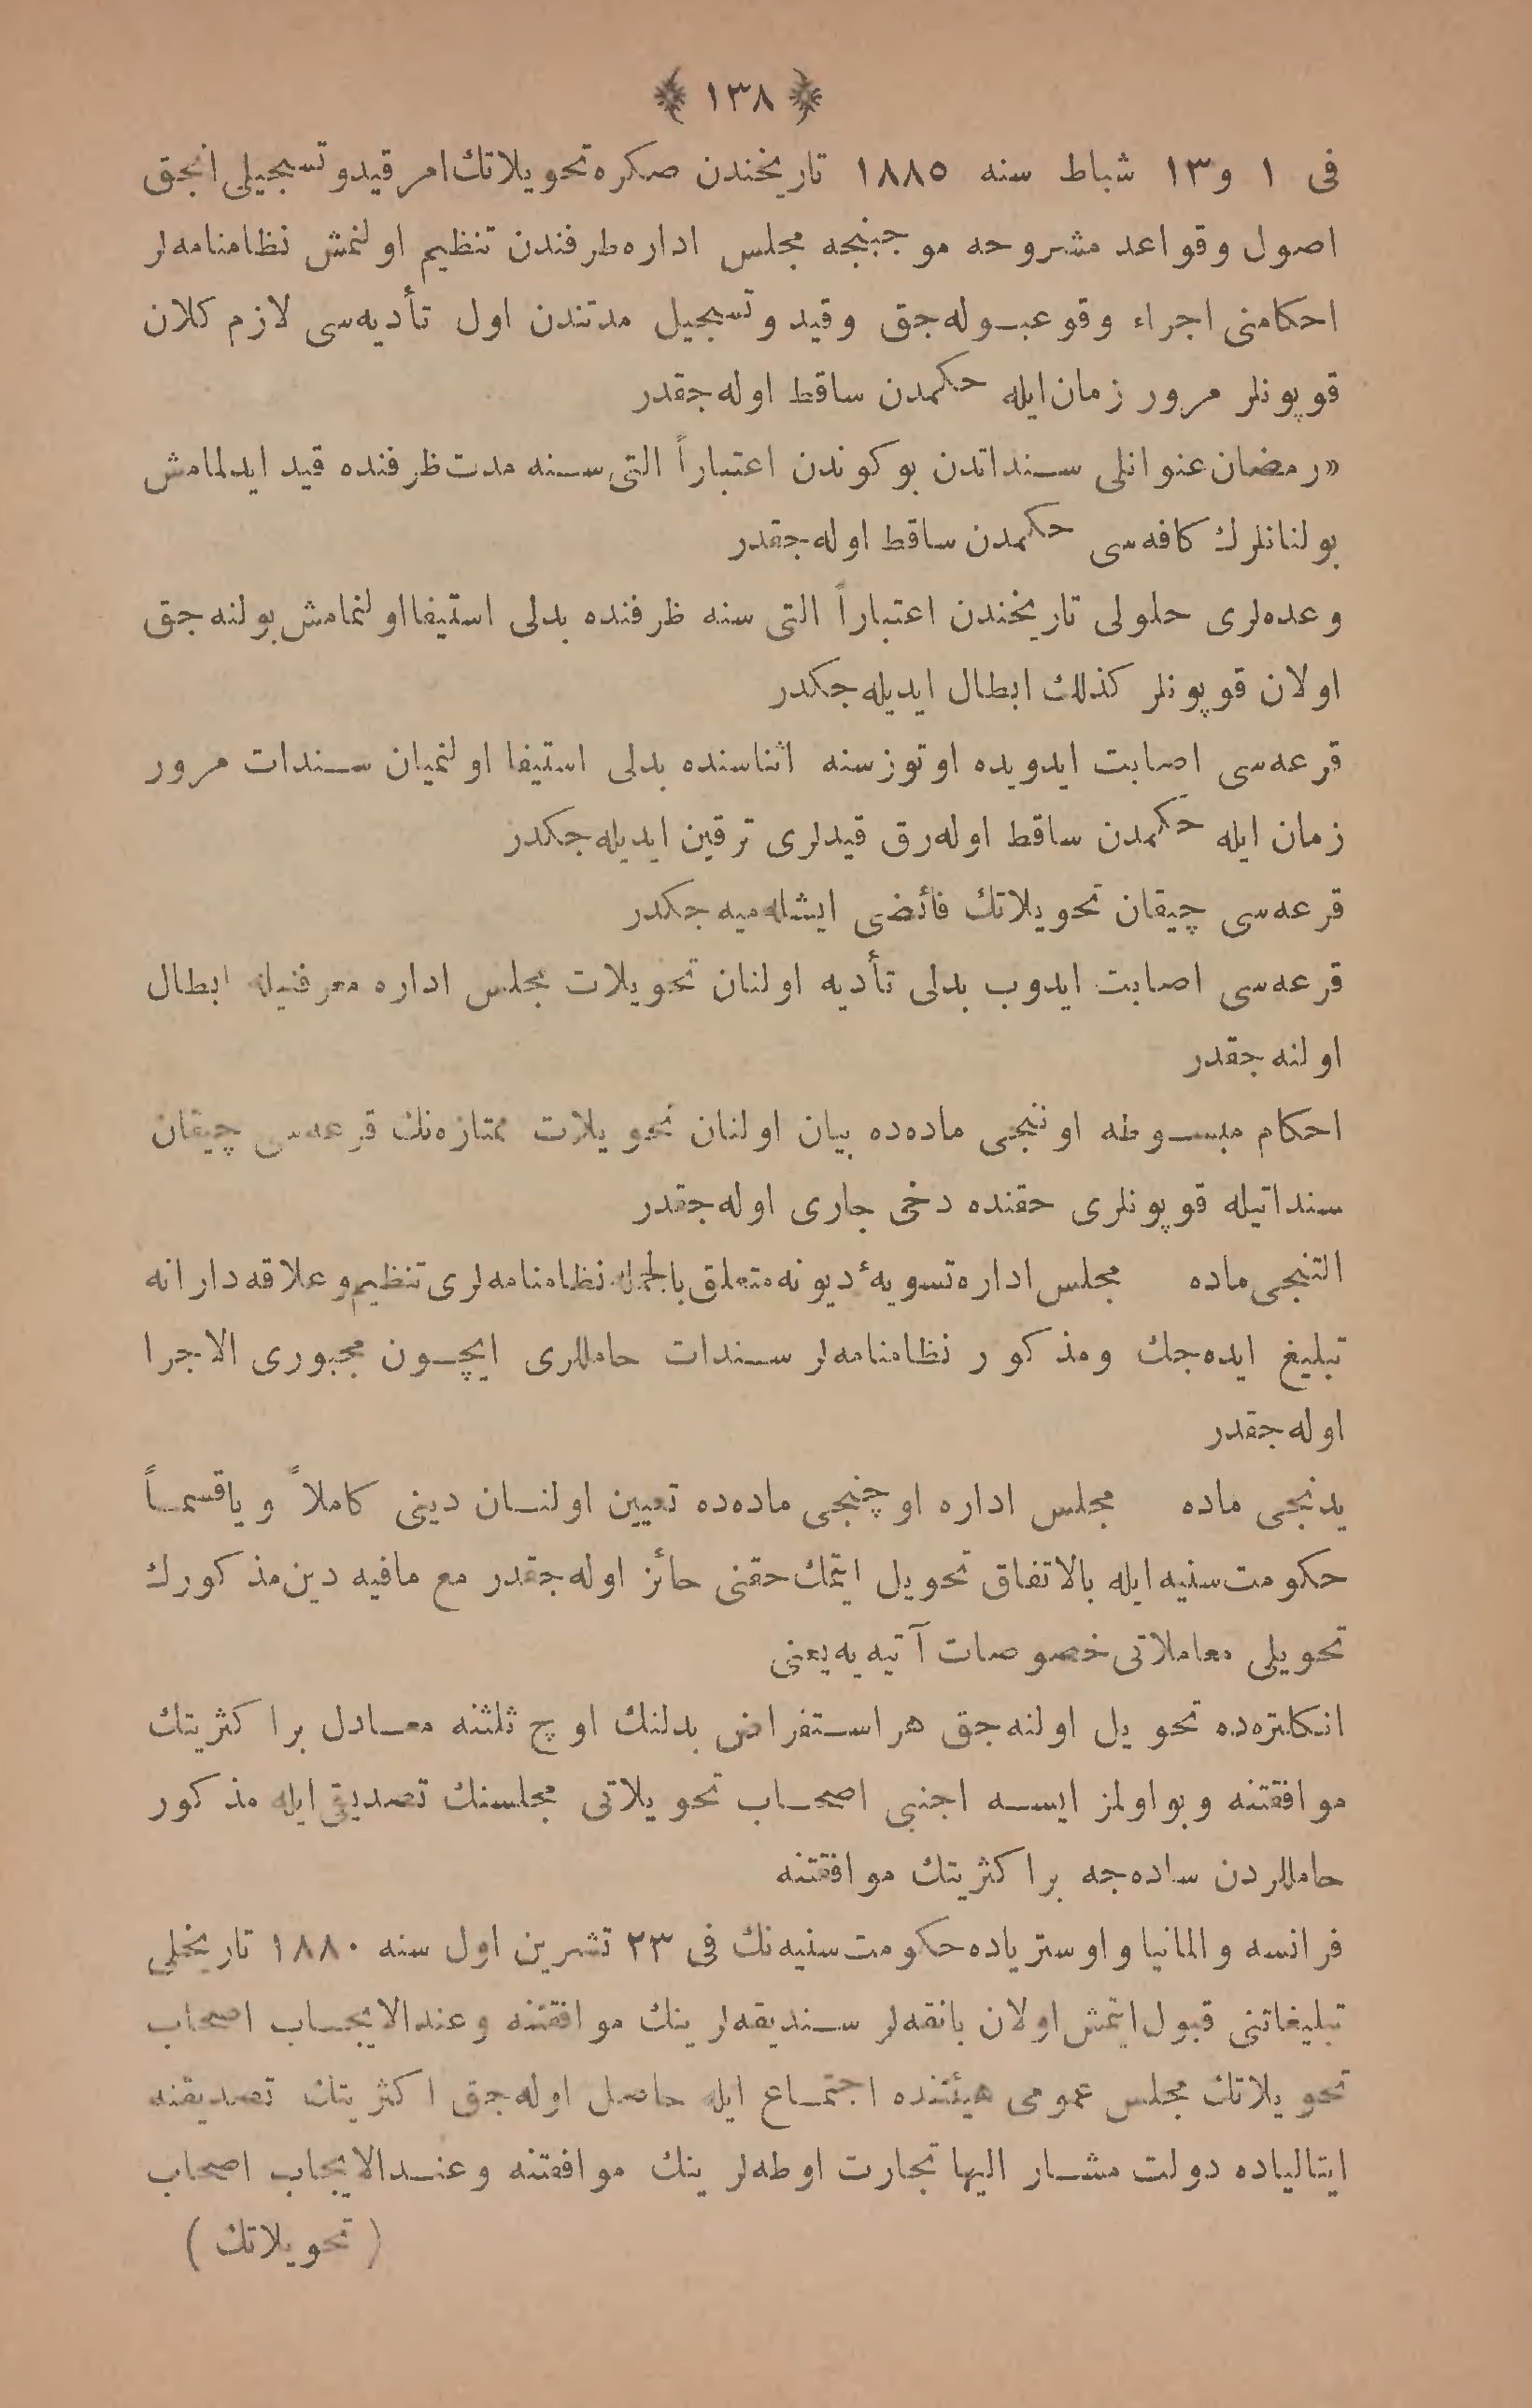 ﴿ ١٣٨ ﴾
فی ١ و١٣ شباط سنه ١٨٨٥ تاریخندن صکره تحویلاتك امر قید و تسجیلی انجق
اصول وقواعد مشروحه موجبنجه مجلس اداره طرفندن تنظیم اولنمش نظامنامه‌لر
احکامنی اجراء وقوعبوله‌جق وقید وتسجیل مدتندن اول تأدیه‌سی لازم کلان
قوپونلر مرور زمان ایله حکمدن ساقط اوله‌جقدر
«رمضان عنوانلی سنداتدن بوکوندن اعتباراً التی سنه مدت ظرفنده قید ایدلمامش
بولنانلرك کافه‌سی حکمدن ساقط اوله‌جقدر
وعده‌لری حلولی تاریخندن اعتباراً التی سنه ظرفنده بدلی استیفا اولنمامش بولنه‌جق
اولان قوپونلر کذلك ابطال ایدیله‌جکدر
قرعه‌سی اصابت ایدوبده اوتوز سنه اثناسنده بدلی استیفا اولنمیان سندات مرور
زمان ایله حکمدن ساقط اوله‌رق قیدلری ترقین ایدیله‌جکدر
قرعه‌سی چیقان تحویلاتك فائضی ایشله‌میه‌جکدر
قرعه‌سی اصابت ایدوب بدلی تأدیه اولنان تحویلات مجلس اداره معرفتیله ابطال
اولنه‌جقدر
احکام مبسوطه اوننجی ماده‌ده بیان اولنان تحویلات ممتازه‌نك قرعه‌سی چیقان
سنداتیله قوپونلری حقنده دخی جاری اوله‌جقدر
التنجی ماده مجلس اداره تسویۀ دیونه متعلق بالجمله نظامنامه‌لری تنظیم و علاقه‌دارانه
تبلیغ ایده‌جك ومذکور نظامنامه‌لر سندات حاملری ایچون مجبوری الاجرا
اوله‌جقدر
یدنجی ماده مجلس اداره اوچنجی ماده‌ده تعیین اولنان دینی کاملاً ویا قسماً
حکومت سنیه ایله بالاتفاق تحویل ایتمك حقنی حائز اوله‌جقدر مع مافیه دین مذکورك
تحویلی معاملاتی خصوصات آتیه‌یه یعنی
انکلتره‌ده تحویل اولنه‌جق هر استقراض بدلنك اوچ ثلثنه معادل بر اکثریتك
موافقتنه وبو اولمز ایسه اجنبی اصحاب تحویلاتی مجلسنك تصدیقی ایله مذکور
حامللردن ساده‌جه بر اکثریتك موافقتنه
فرانسه والمانیا واوستریاده حکومت سنیه‌نك فی ٢٣ تشرین اول سنه ١٨٨٠ تاریخلی
تبلیغاتنی قبول ایتمش اولان بانقه‌لر سندیقه‌لرینك موافقتنه وعندالایجاب اصحاب
تحویلاتك مجلس عمومی هیئتنده اجتماع ایله حاصل اوله‌جق اکثریتك تصدیقنه
ایتالیاده دولت مشار الیها تجارت اوطه‌لرینك موافقتنه وعندالایجاب اصحاب
( تحویلاتك )